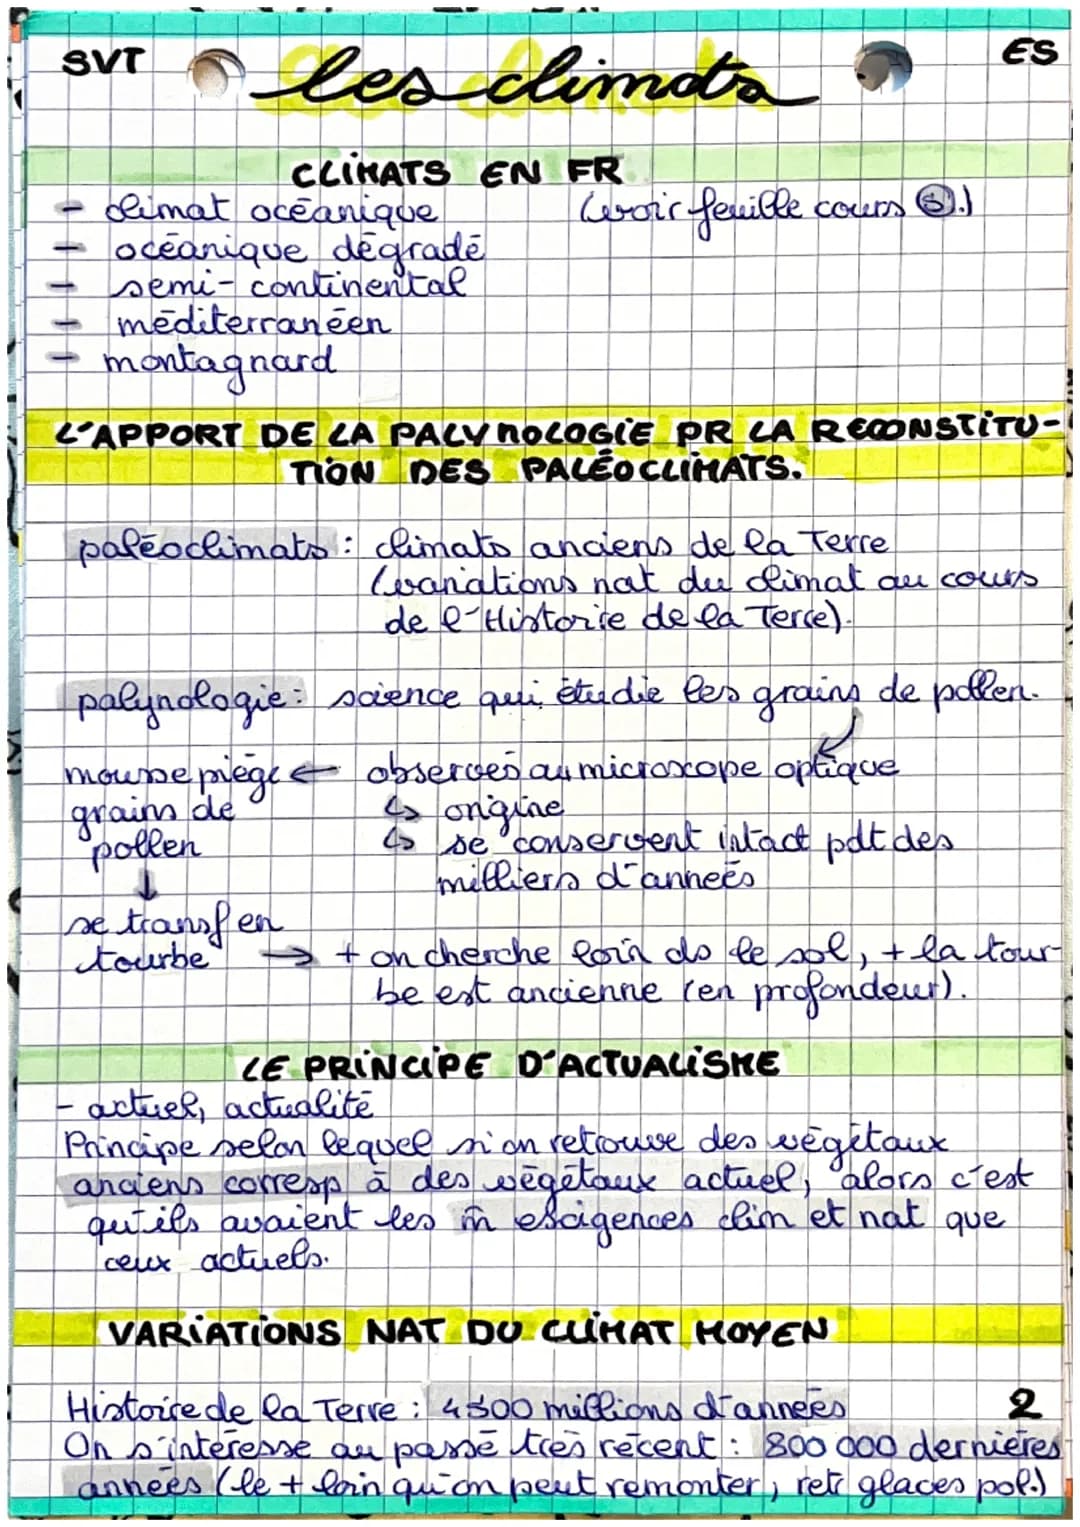 SVT les climats ES
CLIMATS EN FR
- climat océanique (voir feuille cours S.)
- océanique dégradé
- semi-continental
- méditerranéen
- montagnard
L'APPORT DE LA PALYNOLOGIE PR LA RECONSTITU-
TION DES PALÉOCLIMATS.
paléoclimats : climats anciens de la Terre
(variations nat du climat au cours
de l'Histoire de la Terre).
palynologie : science qui étudie les grains de pollen.
mousse piège ← observés au microscope optique
grains de ↳ origine
pollen ↳ se conservent intact pdt des
↓ milliers d'années
se transf en
tourbe → + on cherche loin ds le sol, + la tour-
be est ancienne (en profondeur).
LE PRINCIPE D'ACTUALISME
- actuel, actualité
Principe selon lequel si on retrouve des végétaux
anciens corresp à des végétaux actuel, alors c'est
qu'ils avaient les m̂ exigences clim et nat que
ceux actuels.
VARIATIONS NAT DU CLIMAT MOYEN
Histoire de la Terre : 4500 millions d'années 2
On s'intéresse au passé très récent : 800 000 dernières
années (le + loin qu'on peut remonter, glaces pol.)